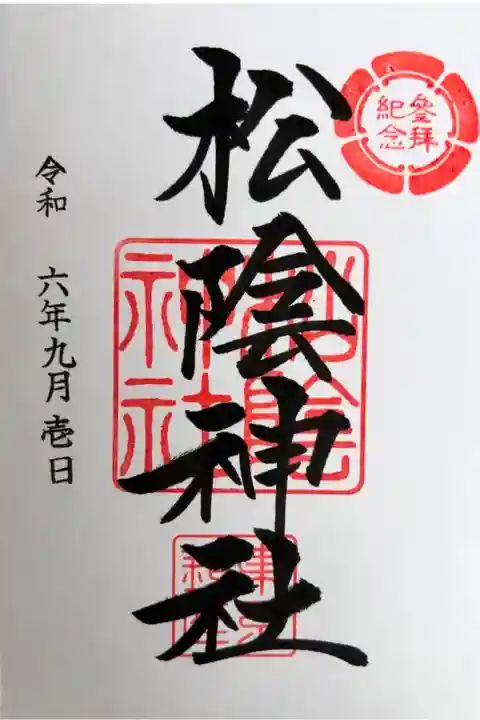 參拝
紀念
松陰神社
松陰
神社
令和 六年九月壱日